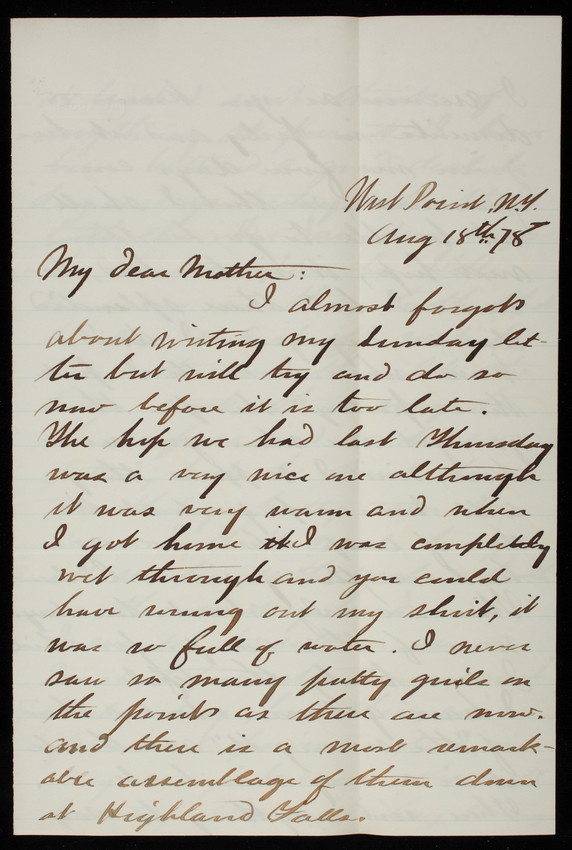 West Point, N.Y.
Aug 18th, 78
My dear Mother:
I almost forgot
about writing my Sunday let-
ter but will try and do so
now before it is too late.
The hop we had last Thursday
was a very nice one although
it was very warm and when
I got home I was completely
wet through and you could
have wrung out my shirt, it
was so full of water. I never
saw so many pretty girls on
the point as there are now.
and there is a most remark-
able assemblage of them down
at Highland Falls.